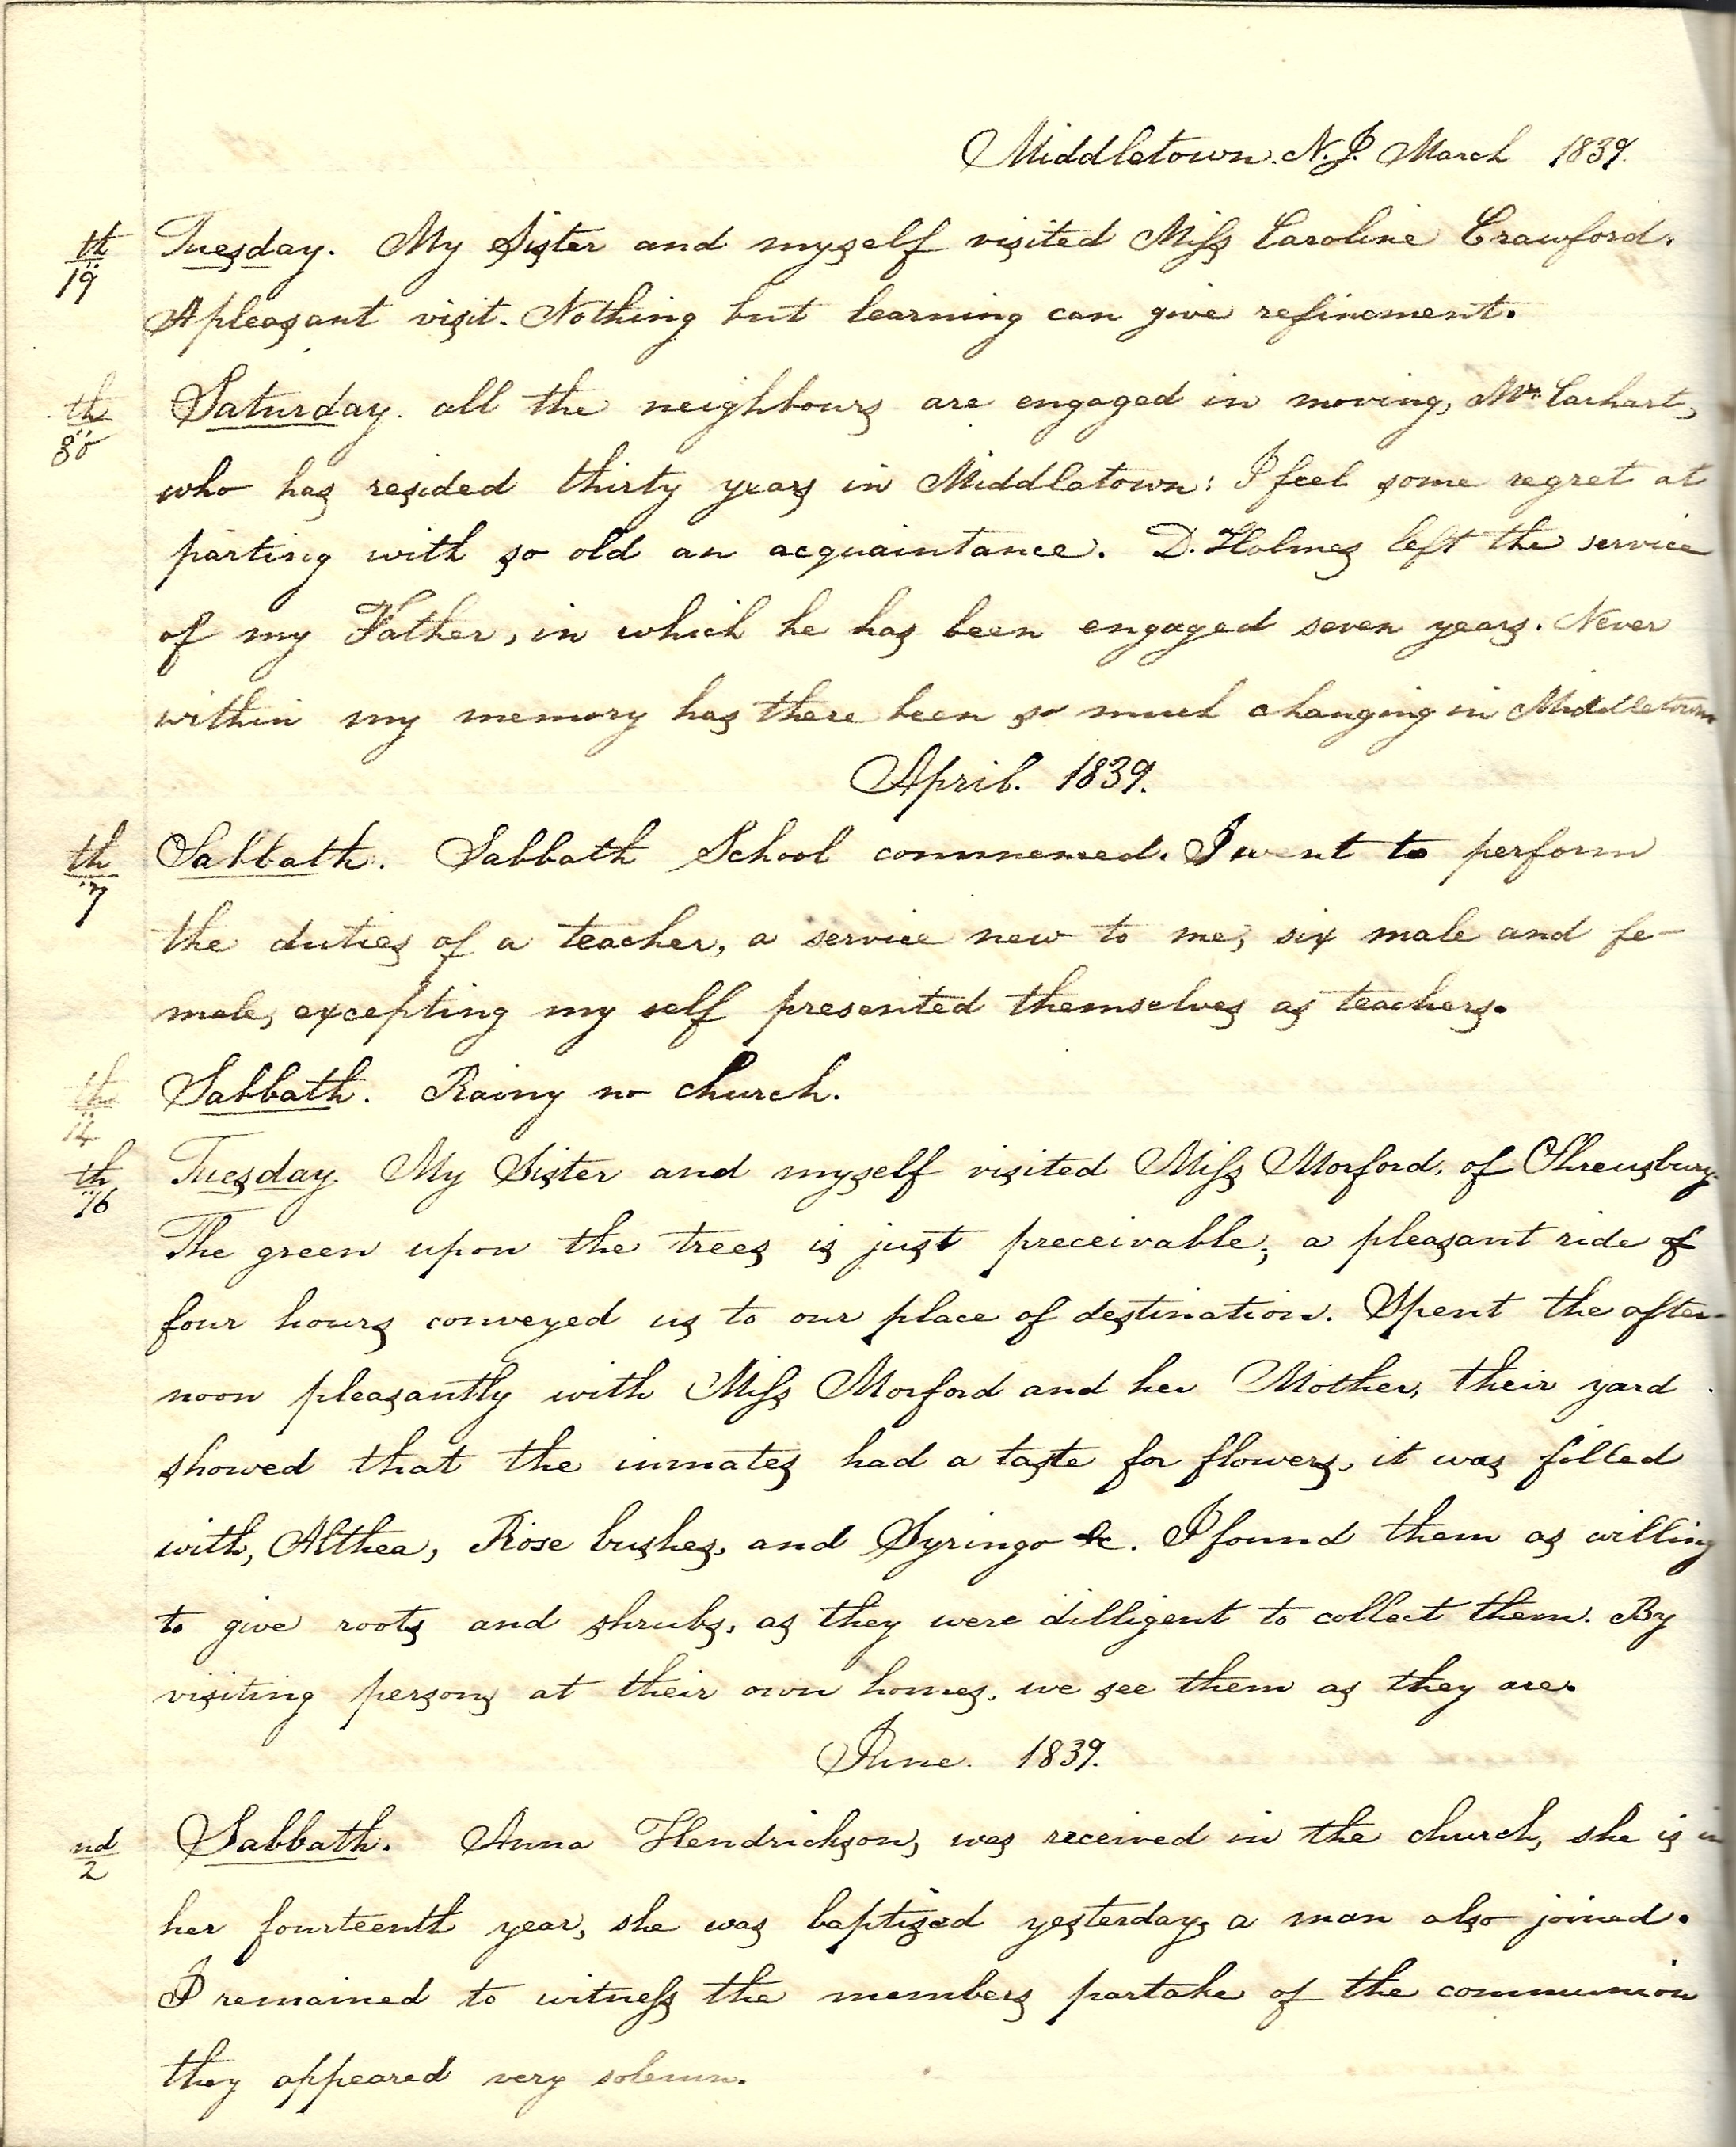 Middletown. N.J. March 1839.
th 19 Tuesday. My Sister and myself visited Miss Caroline Crawford.
A pleasant visit. Nothing but learning can give refinement.
th 30 Saturday. all the neighbours are engaged in moving, Mr Carhart,
who has resided thirty years in Middletown: I feel some regret at
parting with so old an acquaintance. D. Holmes left the service
of my Father, in which he has been engaged seven years. Never
within my memory has there been so much changing in Middletown
April. 1839.
th 7 Sabbath. Sabbath School commenced. I went to perform
the duties of a teacher, a service new to me, six male and fe-
male, excepting my self presented themselves as teachers.
th 14 Sabbath. Rainy no church.
th 16 Tuesday. My Sister and myself visited Miss Morford, of Shrewsbury.
The green upon the trees is just preceivable, a pleasant ride of
four hours conveyed us to our place of destination. Spent the after-
noon pleasantly with Miss Morford and her Mother, their yard
showed that the inmates had a taste for flowers, it was filled
with, Althea, Rose bushes, and Syringo &c. I found them as willing
to give roots and shrubs, as they were dilligent to collect them. By
visiting persons at their own homes, we see them as they are.
June. 1839.
nd 2 Sabbath. Anna Hendrickson, was received in the church, she is in
her fourteenth year, she was baptized yesterday, a man also joined.
I remained to witness the members partake of the communion
they appeared very solemn.